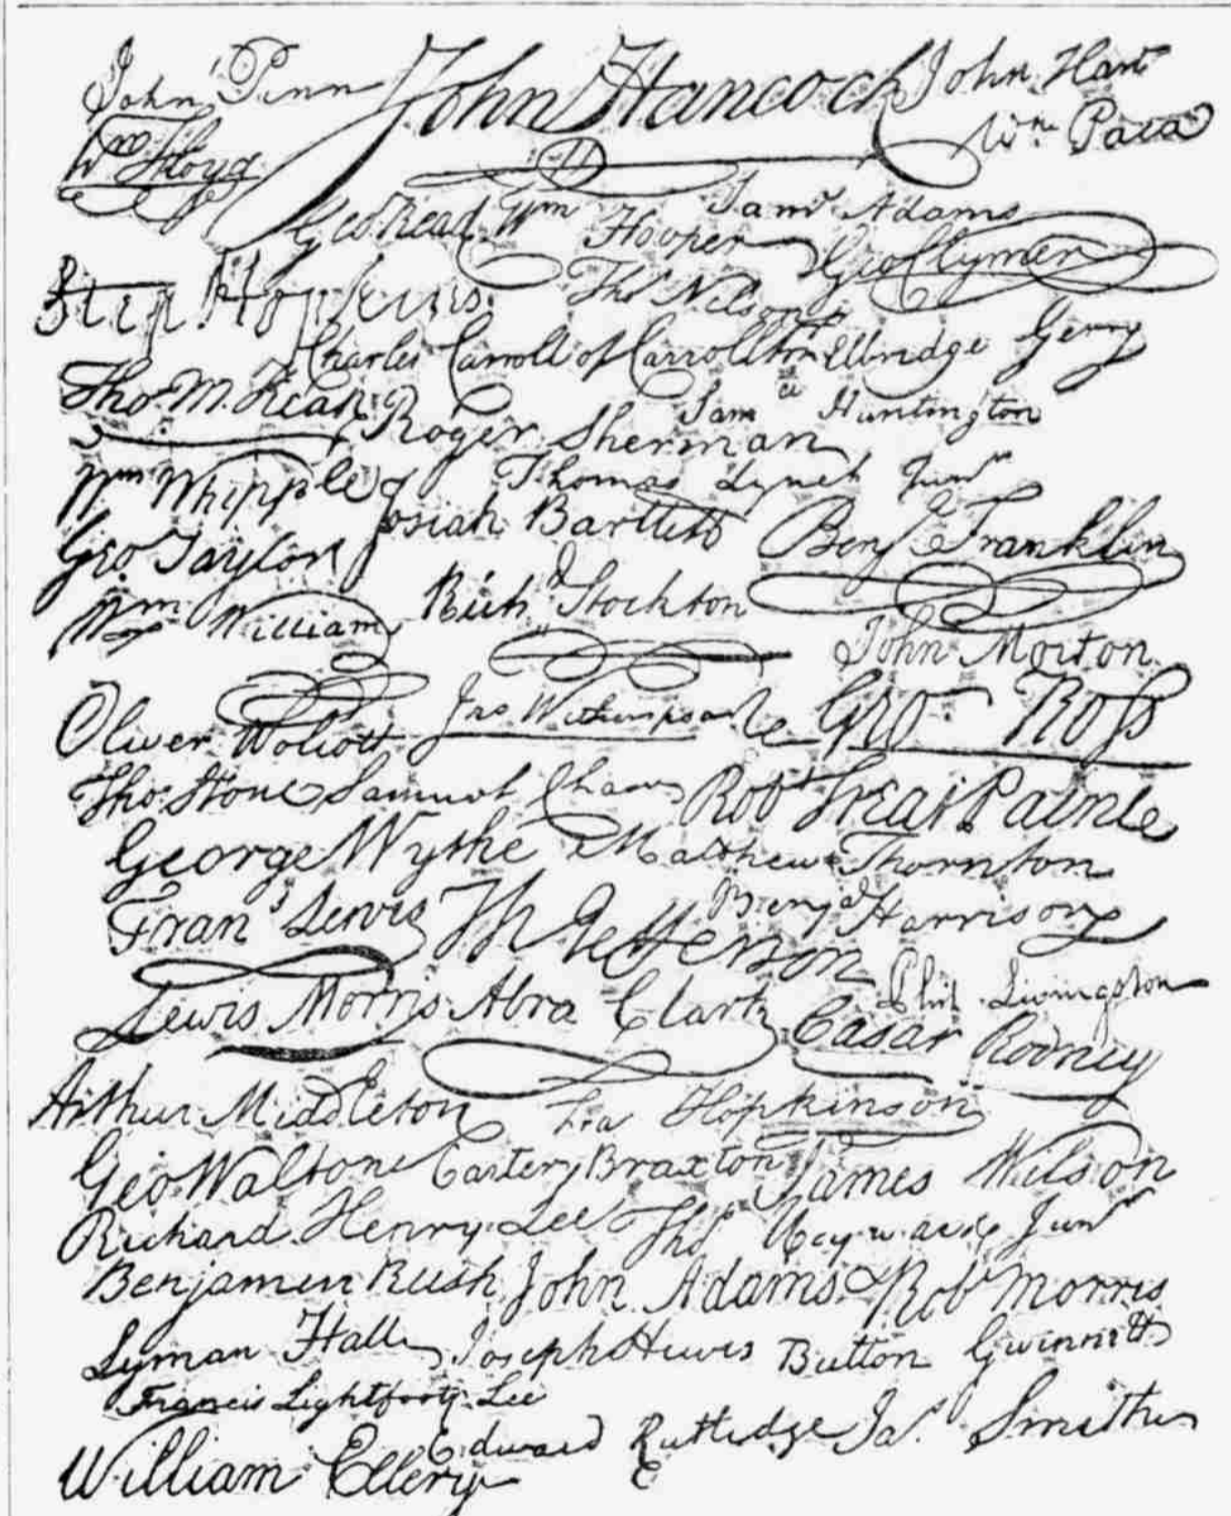 John Penn John Hancock John Hart
Wm Floyd Wm. Paca
Geo Read Wm Hooper Saml Adams
Geo Clymer
Step Hopkins Thos Nelson
Charles Carroll of Carrollton Elbridge Gerry
Tho M. Kean Roger Sherman Saml Huntington
Wm Whipple Thomas Lynch Junr
Josiah Bartlett Benj Franklin
Geo. Taylor
Wm William Richd Stockton
John Morton
Oliver Wolcott Jno Witherspoon Geo Ross
Tho. Stone Samuel Chase Robt Treat Paine
George Wythe Matthew Thornton
Frans Lewis Th Jefferson Benja Harrison
Lewis Morris Abra Clark Phil. Livingston
Casar Rodney
Arthur Middleton Fra Hopkinson
Geo Walton Carter Braxton James Wilson
Richard Henry Lee Thos Heyward Junr
Benjamin Rush John Adams Robt Morris
Lyman Hall Joseph Hewes Button Gwinnett
Francis Lightfoot Lee
William Ellery Edward Rutledge Jas. Smith